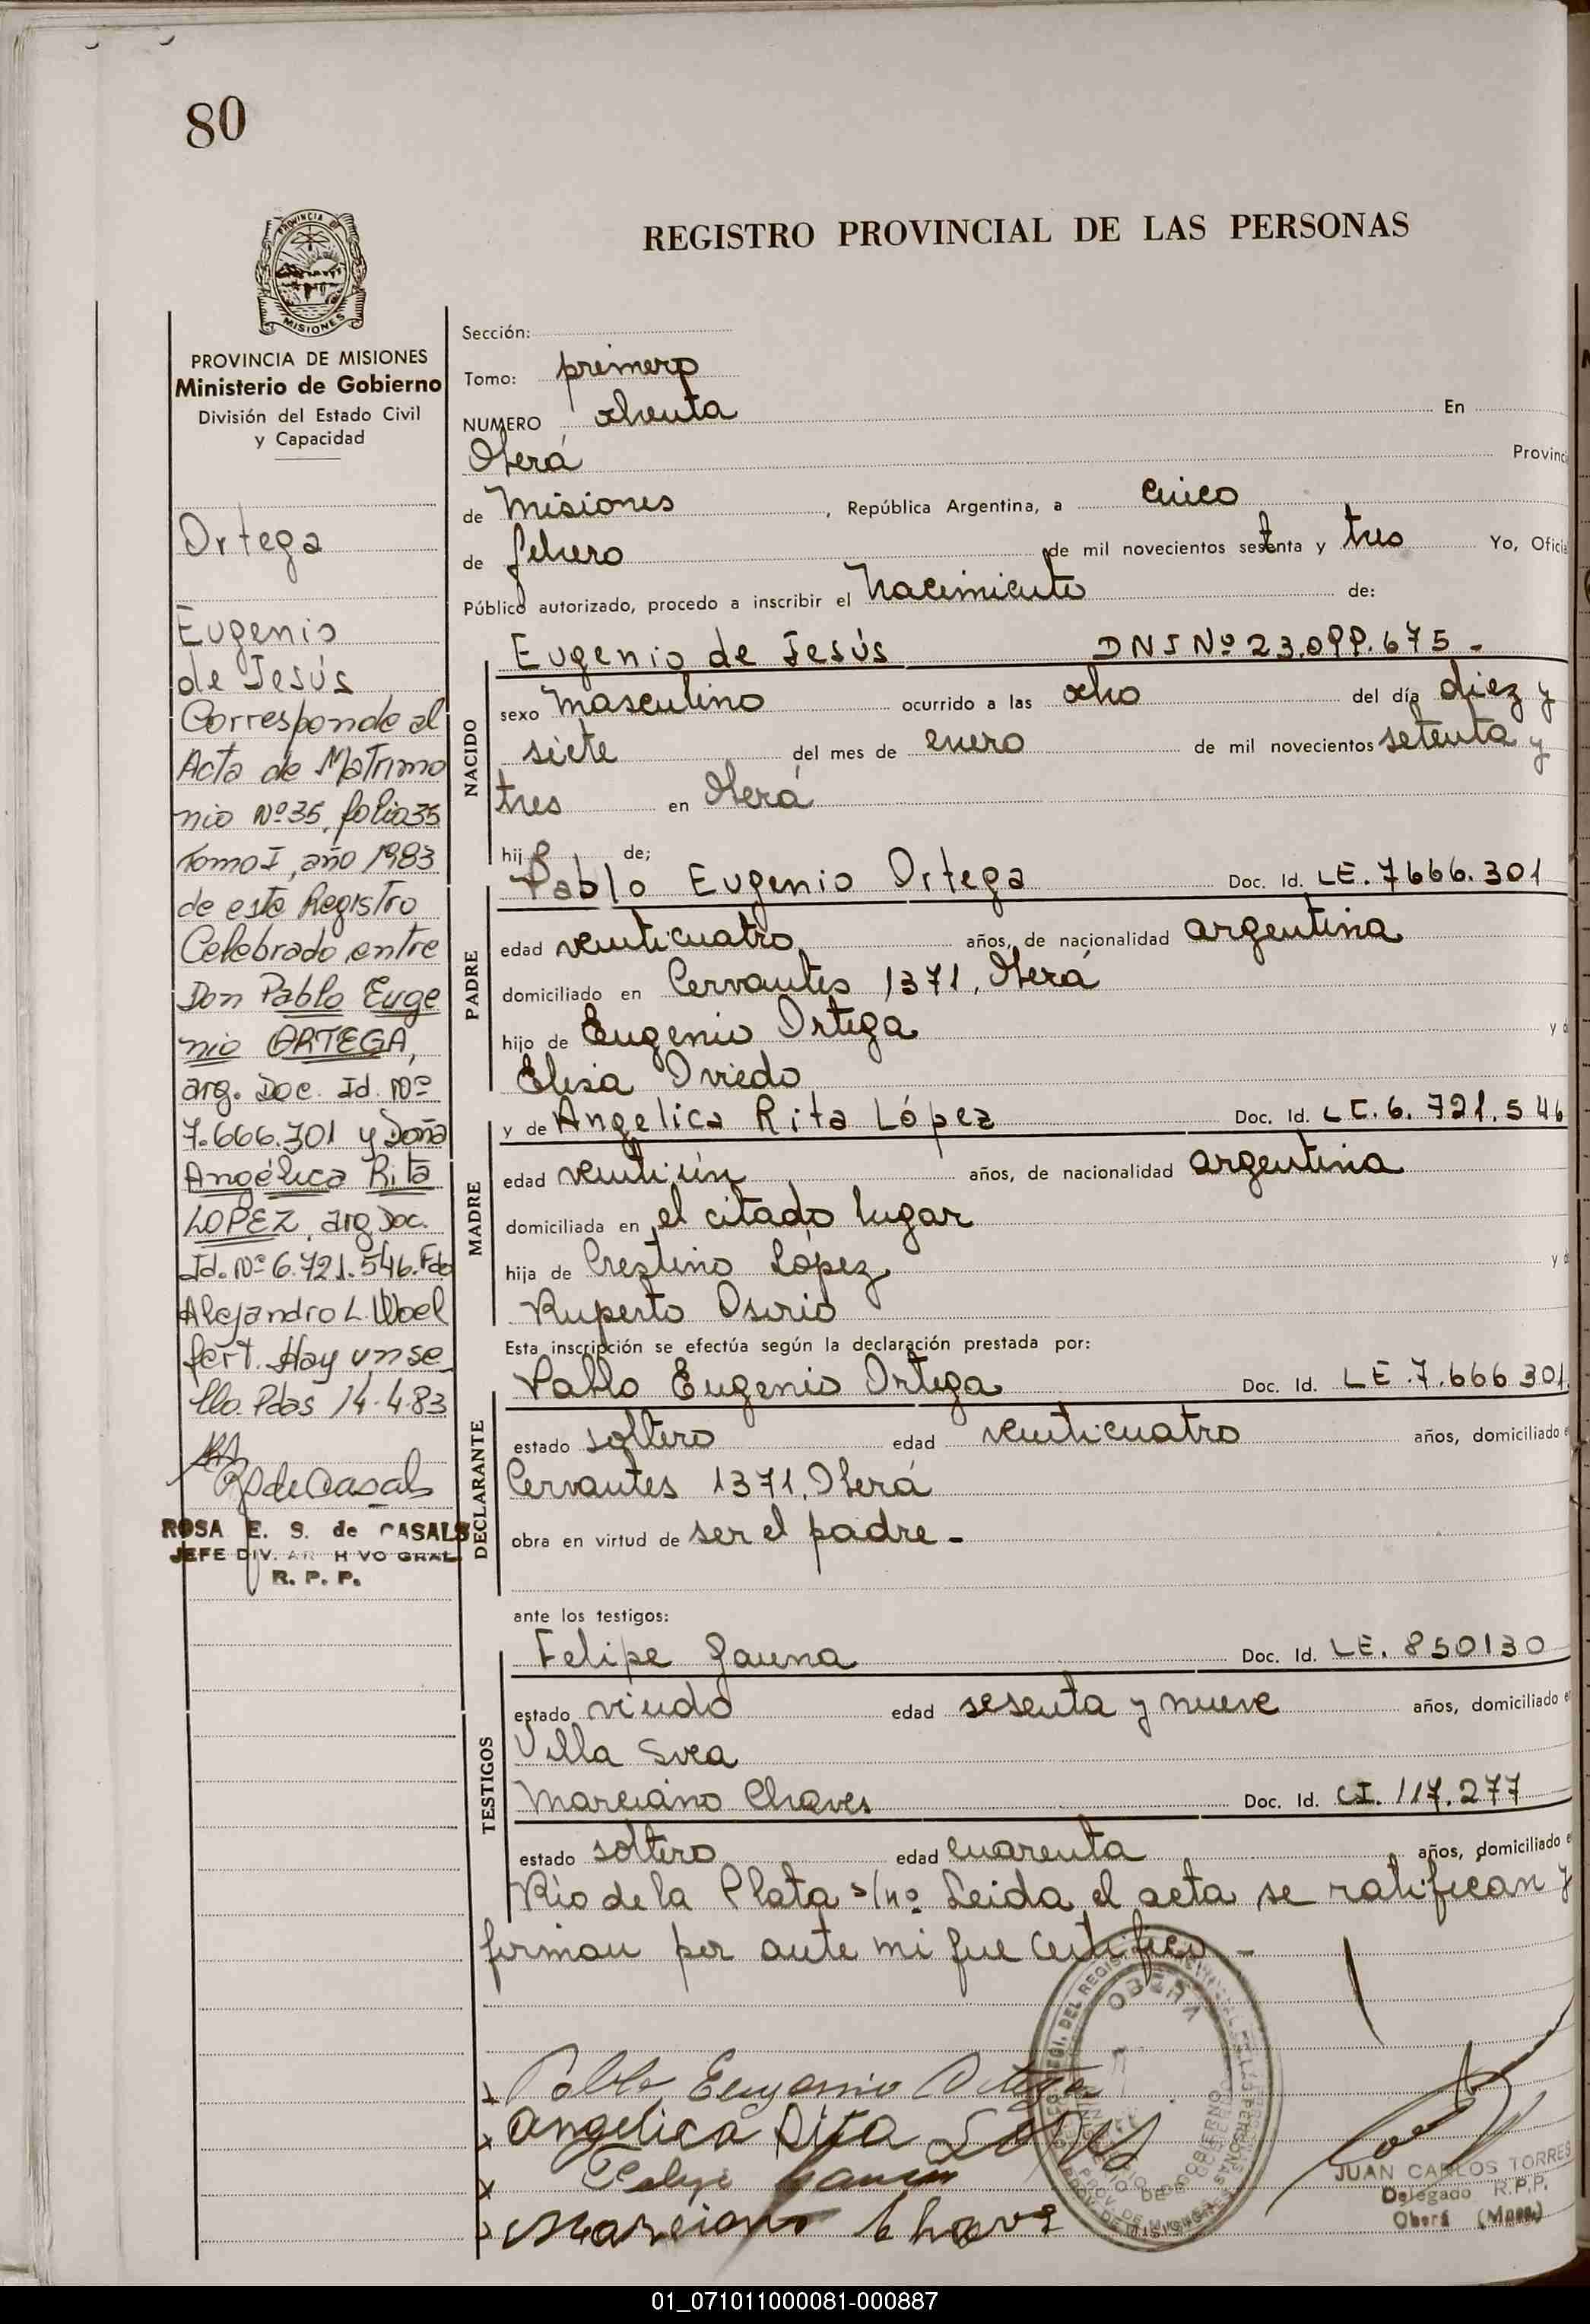 80
PROVINCIA DE
MISIONES
REGISTRO PROVINCIAL DE LAS PERSONAS
PROVINCIA DE MISIONES
Ministerio de Gobierno
División del Estado Civil
y Capacidad
Ortega
Eugenio
de Jesús
Corresponde al
Acta de Matrimo
nio Nº 35, folio 35
Tomo I, año 1983
de este Registro
Celebrado entre
Don Pablo Euge
nio ORTEGA,
arg. Doc. Id. Nº
7.666.301 y Doña
Angélica Rita
LOPEZ, arg Doc.
Id. Nº 6.721.546. Fdo
Alejandro L. Woel
fert. Hay un se
llo. Pdas 14.4.83
RS de Casals
ROSA E. S. de CASALS
JEFE DIV. ARCHIVO GRAL.
R. P. P.
Sección:
Tomo: primero
NUMERO ochenta En
Oberá Provinci
de Misiones, República Argentina, a cinco
de febrero de mil novecientos setenta y tres Yo, Oficia
Público autorizado, procedo a inscribir el Nacimiento de:
NACIDO
Eugenio de Jesús DNI Nº 23.099.675 -
sexo masculino ocurrido a las ocho del día diez y
siete del mes de enero de mil novecientos setenta y
tres en Oberá
hijo de;
PADRE
Pablo Eugenio Ortega Doc. Id. LE. 7666.301
edad veinticuatro años, de nacionalidad argentina
domiciliado en Cervantes 1371, Oberá
hijo de Eugenio Ortega y d
Elisa Oviedo
MADRE
y de Angelica Rita López Doc. Id. LE. 6.721.546
edad veintiún años, de nacionalidad argentina
domiciliada en el citado lugar
hija de Crestino López y d
Ruperto Osorio
Esta inscripción se efectúa según la declaración prestada por:
DECLARANTE
Pablo Eugenio Ortega Doc. Id. LE.7.666.301
estado soltero edad veinticuatro años, domiciliado e
Cervantes 1371, Oberá
obra en virtud de ser el padre -
ante los testigos:
TESTIGOS
Felipe Gauna Doc. Id. LE. 850130
estado viudo edad sesenta y nueve años, domiciliado en
Villa Svea
Marciano Chaves Doc. Id. CI. 117.277
estado soltero edad cuarenta años, domiciliado e
Río de la Plata s/nº Leida el acta se ratifican y
firman por ante mi que certifico -
OBERA
Pablo Eugenio Ortega
Angelica Rita Lopez
Felipe Gauna
Marciano Chavez
JUAN CARLOS TORRES
Delegado R.P.P.
Oberá (Mnes.)
01_071011000081-000887